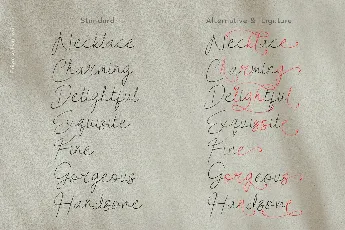 Standard
Necklace
Charming
Delightful
Exquisite
Fine
Gorgeous
Handsome
Alternative & Ligature
Necklace
Charming
Delightful
Exquisite
Fine
Gorgeous
Handsome